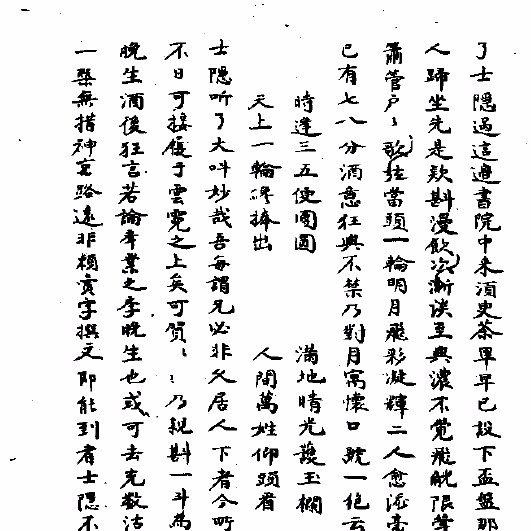 了士隱過這邊書院中来須臾茶畢早已設下盃盤那
人歸坐先是欵斟漫飲次漸談至興濃不覺飛觥限斝
簫管戶〻歌絃當頭一輪明月飛彩凝輝二人愈添豪
已有七八分酒意狂興不禁乃對月寓懷口號一絕云
時逢三五便團圓 滿地晴光護玉欄
天上一輪纔捧出 人間萬姓仰頭看
士隱听了大呌妙哉吾每謂兄必非久居人下者今所
不日可接履于雲霓之上矣可賀〻〻乃親斟一斗為
晚生酒後狂言若論舉業之李晚生也或可去充数沽
一槩無措神京路遠非頼賣字撰文即能到者士隱不